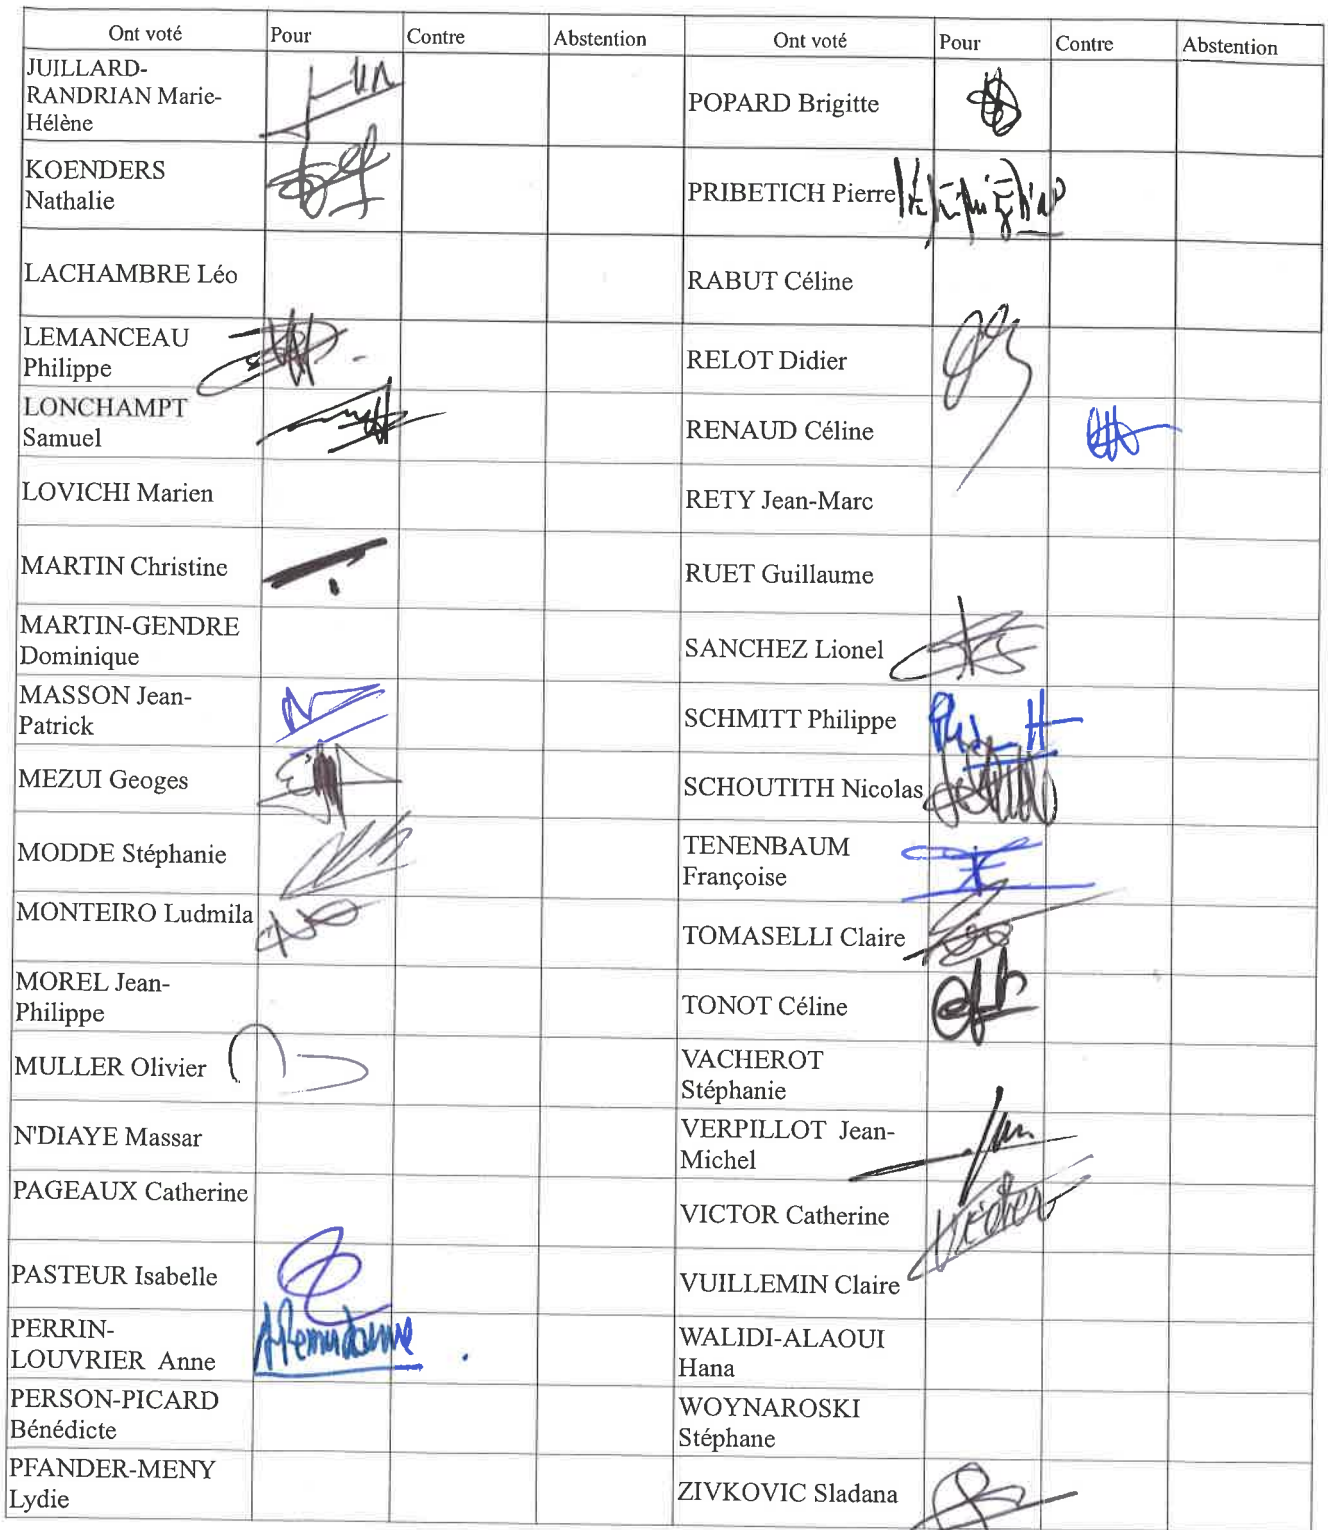 Ont voté Pour Contre Abstention
JUILLARD-
RANDRIAN Marie-
Hélène
KOENDERS
Nathalie
LACHAMBRE Léo
LEMANCEAU
Philippe
LONCHAMPT
Samuel
LOVICHI Marien
MARTIN Christine
MARTIN-GENDRE
Dominique
MASSON Jean-
Patrick
MEZUI Geoges
MODDE Stéphanie
MONTEIRO Ludmila
MOREL Jean-
Philippe
MULLER Olivier
N'DIAYE Massar
PAGEAUX Catherine
PASTEUR Isabelle
PERRIN-
LOUVRIER Anne
PERSON-PICARD
Bénédicte
PFANDER-MENY
Lydie
Ont voté Pour Contre Abstention
POPARD Brigitte
PRIBETICH Pierre
RABUT Céline
RELOT Didier
RENAUD Céline
RETY Jean-Marc
RUET Guillaume
SANCHEZ Lionel
SCHMITT Philippe
SCHOUTITH Nicolas
TENENBAUM
Françoise
TOMASELLI Claire
TONOT Céline
VACHEROT
Stéphanie
VERPILLOT Jean-
Michel
VICTOR Catherine
VUILLEMIN Claire
WALIDI-ALAOUI
Hana
WOYNAROSKI
Stéphane
ZIVKOVIC Sladana